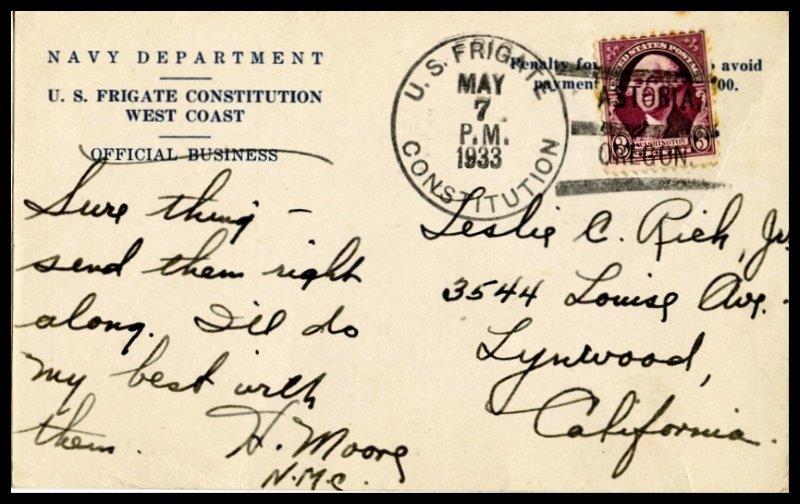 NAVY DEPARTMENT
U. S. FRIGATE CONSTITUTION
WEST COAST
OFFICIAL BUSINESS
U. S. FRIGATE
MAY
7
P.M.
1933
CONSTITUTION
Penalty for avoid
payment 00.
UNITED STATES POSTAGE
ASTORIA,
OREGON.
3 WASHINGTON 3
Sure thing –
send them right
along. I'll do
my best with
them. H. Moore
N.M.C.
Leslie C. Rich, Jr.
3544 Louise Ave.
Lynwood,
California.